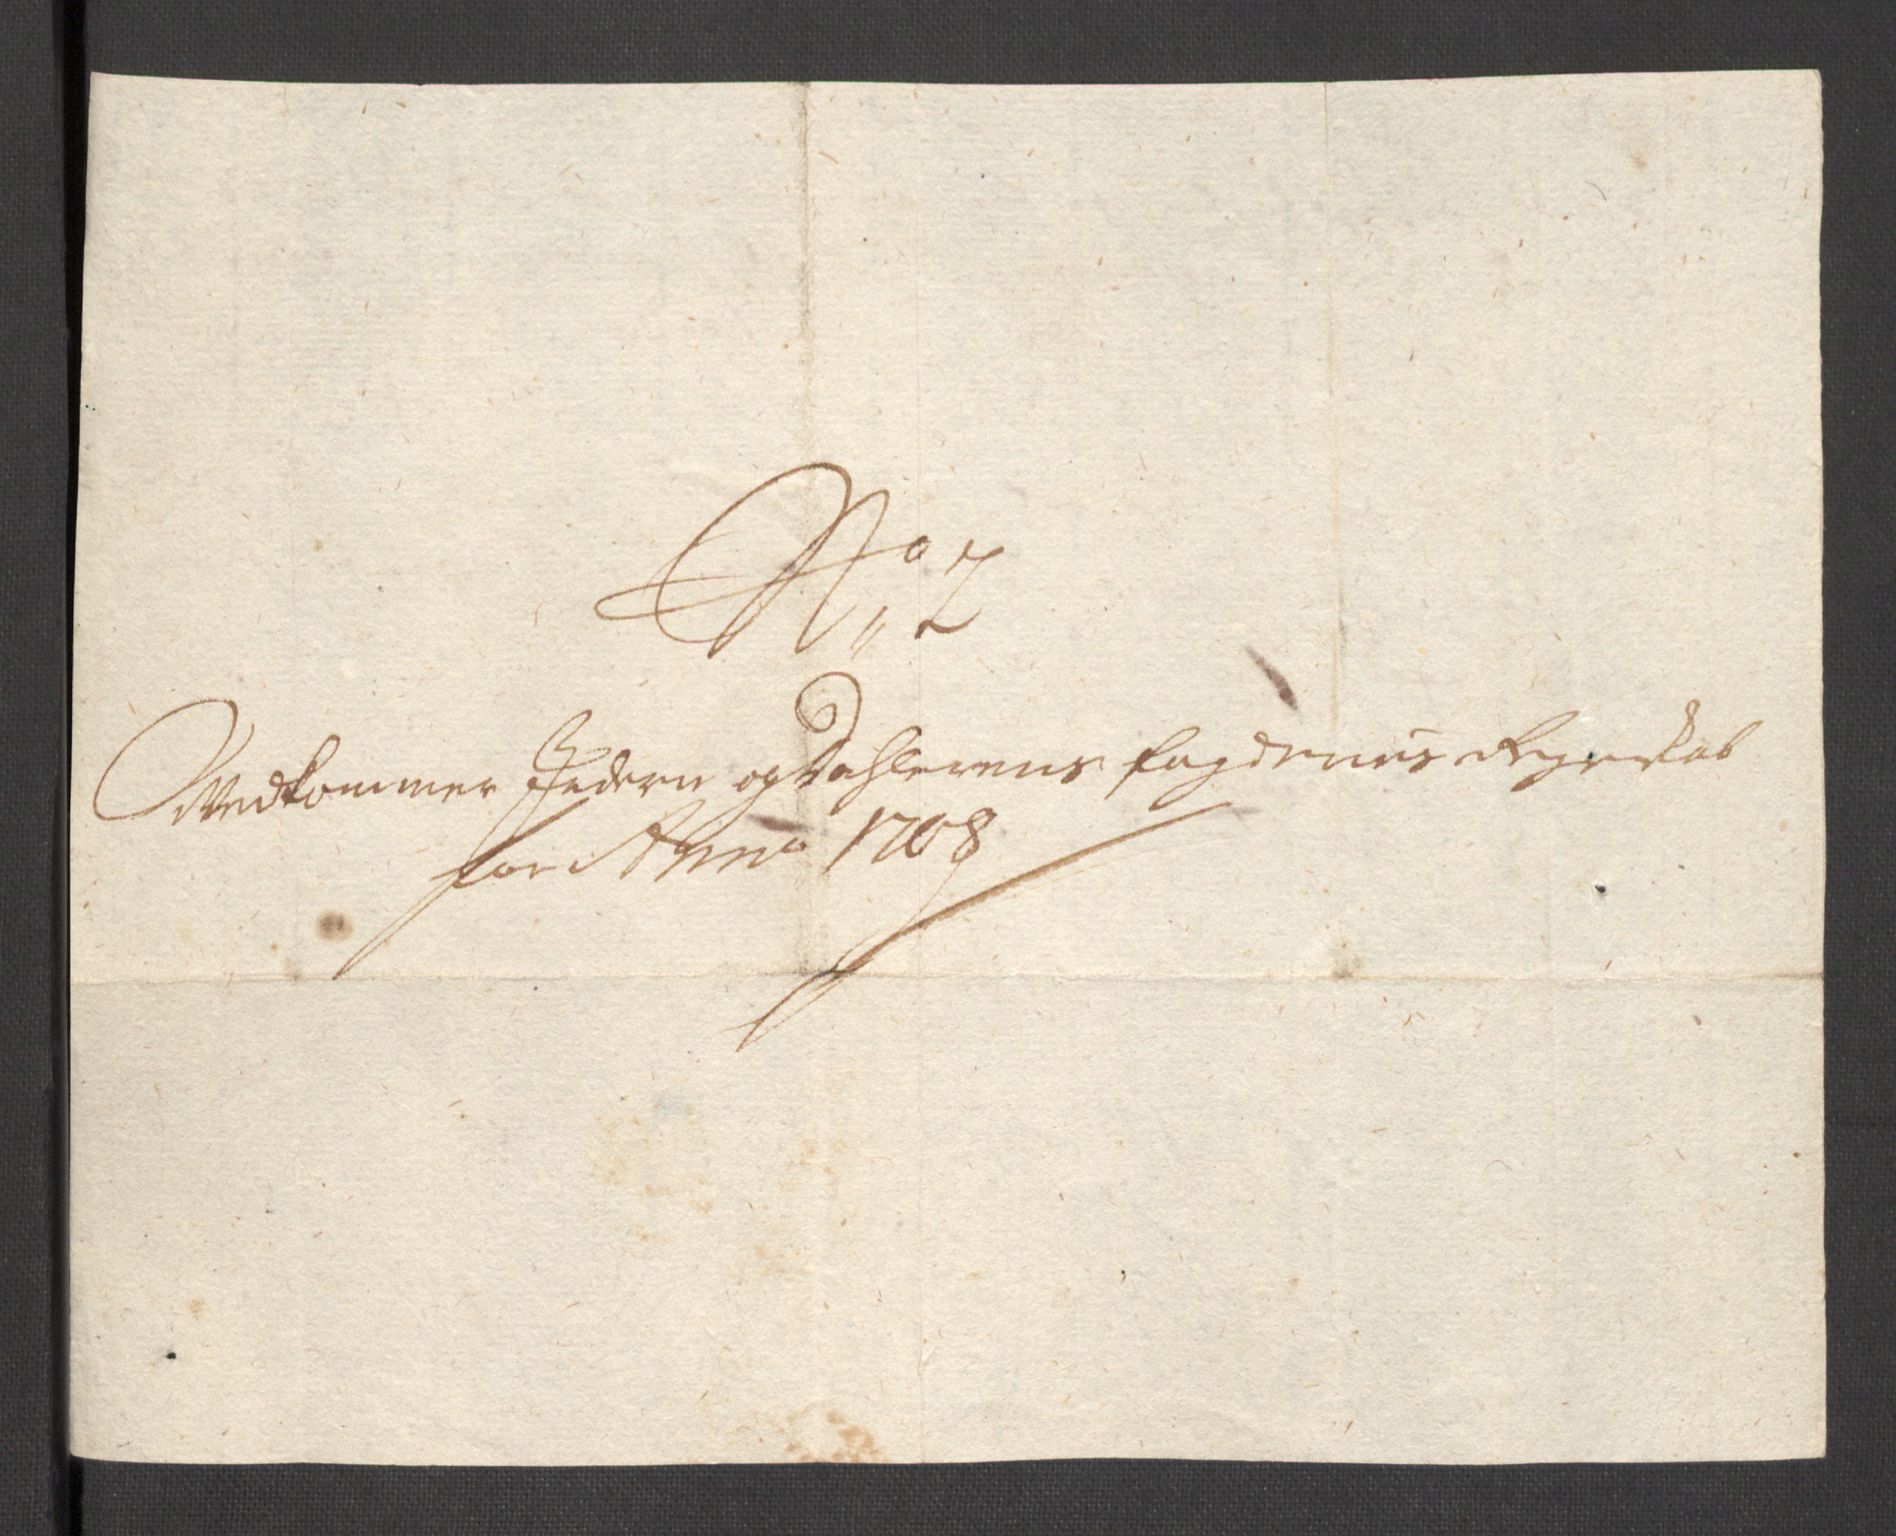 No 2
Vedkommer Jedern og Dahlernes fogderies Regenskab
for Anno 1708